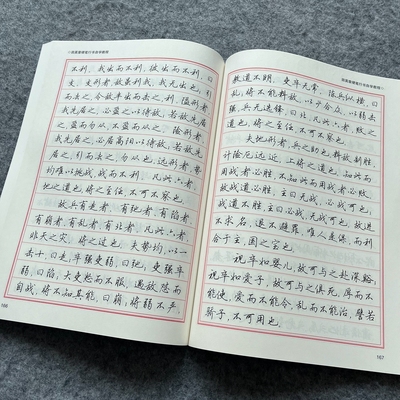 不利，我出而不利，彼出而不利，曰
支，支形者，敌虽利我，我无出也，引
而去之，令敌半出而击之，利。隘形者，
我先居之，必盈之以待敌，若敌先居
之，盈而勿从，不盈而从之。险形者，
我先居之，必居高阳以待敌，若敌先
居之，引而去之，勿从也。远形者，势
均难以挑战，战而不利。凡此六者，
地之道也，将之至任，不可不察也。
故兵有走者，有弛者，有陷者，
有崩者，有乱者，有北者，凡此六者，
非天之灾，将之过也。夫势均，以一
击十，曰走，卒强吏弱，曰弛，吏强卒
弱，曰陷，大吏怒而不服，遇敌怼而
自战，将不知其能，曰崩，将弱不严，
166
教道不明，吏卒无常，陈兵纵横，曰
乱，将不能料敌，以少合众，以弱击
强，兵无选锋，曰北，凡此六者，败之
道也，将之至任，不可不察也。
夫地形者，兵之助也，料敌制胜，
计险厄远近，上将之道也，知此而
用战者必胜，不知此而用战者必败
故战道必胜，主曰无战，必战可也，
战道不胜，主曰必战，无战可也，故进
不求名，退不避罪，唯人是保，而利
合于主，国之宝也。
视卒如婴儿，故可与之赴深谿；
视卒如爱子，故可与之俱死，厚而不
能使，爱而不能令，乱而不能治，譬若
骄子，不可用也。
167